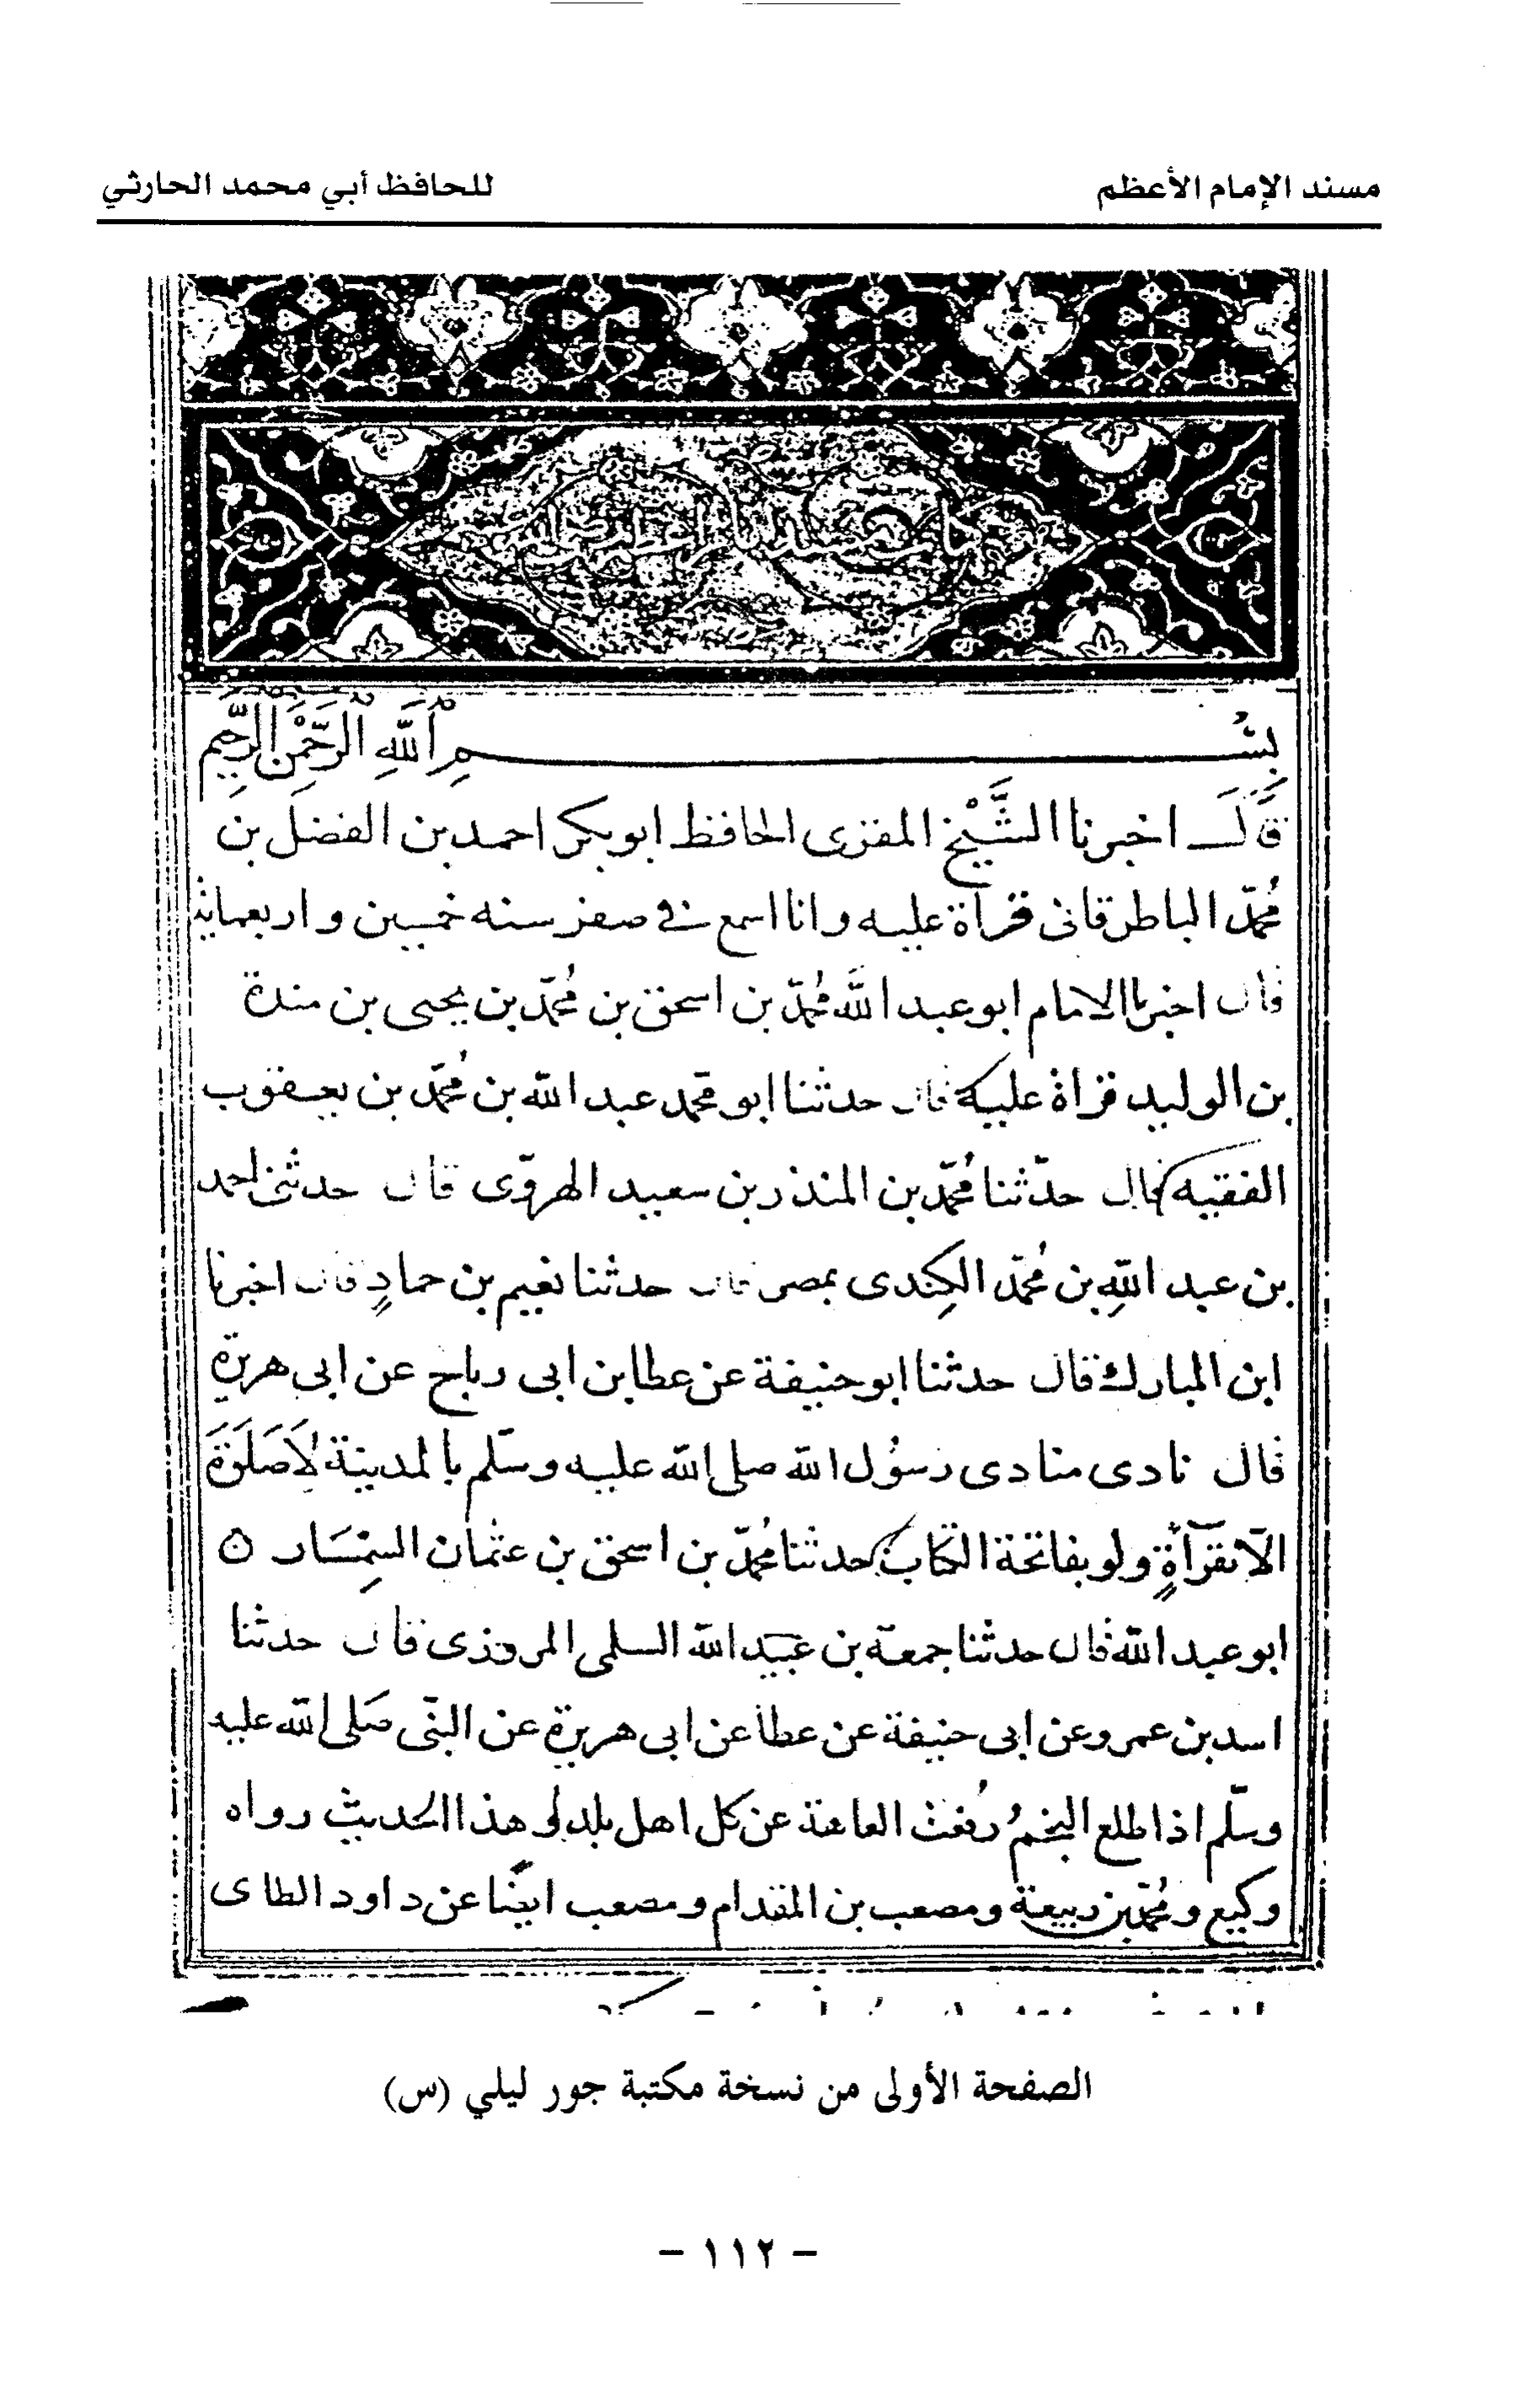 مسند الإمام الأعظم
للحافظ أبي محمد الحارثي
بسم الله الرحمن الرحيم
قال اخبرنا الشيخ المقرى الحافظ ابو بكر احمد بن الفضل بن
محمد الباطرقانى قرآة عليه وانا اسمع في صفر سنه خمسين واربعماية
قال اخبرنا الامام ابو عبد الله محمد بن اسحق بن محمد بن يحيى بن مندة
بن الوليد قراة عليه قال حدثنا ابو محمد عبد الله بن محمد بن يعقوب
الفقيه قال حدثنا محمد بن المنذر بن سعيد الهروى قال حدثنى احمد
بن عبد الله بن محمد الكندى بمصر قال حدثنا نعيم بن حماد قال اخبرنا
ابن المبارك قال حدثنا ابو حنيفة عن عطا بن ابى رباح عن ابى هريرة
قال نادى منادى رسول الله صلى الله عليه وسلم بالمدينة لاصلوة
الا بقرآة ولو بفاتحة الكتاب حدثنا محمد بن اسحق بن عثمان السمسار ن
ابو عبد الله قال حدثنا جمعه بن عبد الله السلمى المروزى قال حدثنا
اسد بن عمرو عن ابى حنيفة عن عطا عن ابى هريرة عن النبى صلى الله عليه
وسلم اذا طلع النجم رفعت العاهة عن كل اهل بلد لى هذا الحديث رواه
وكيع ومحمد بن ربيعة ومصعب بن المقدام ومصعب ايضا عن داود الطاى
الصفحة الأولى من نسخة مكتبة جور ليلي (س)
- ١١٢ -